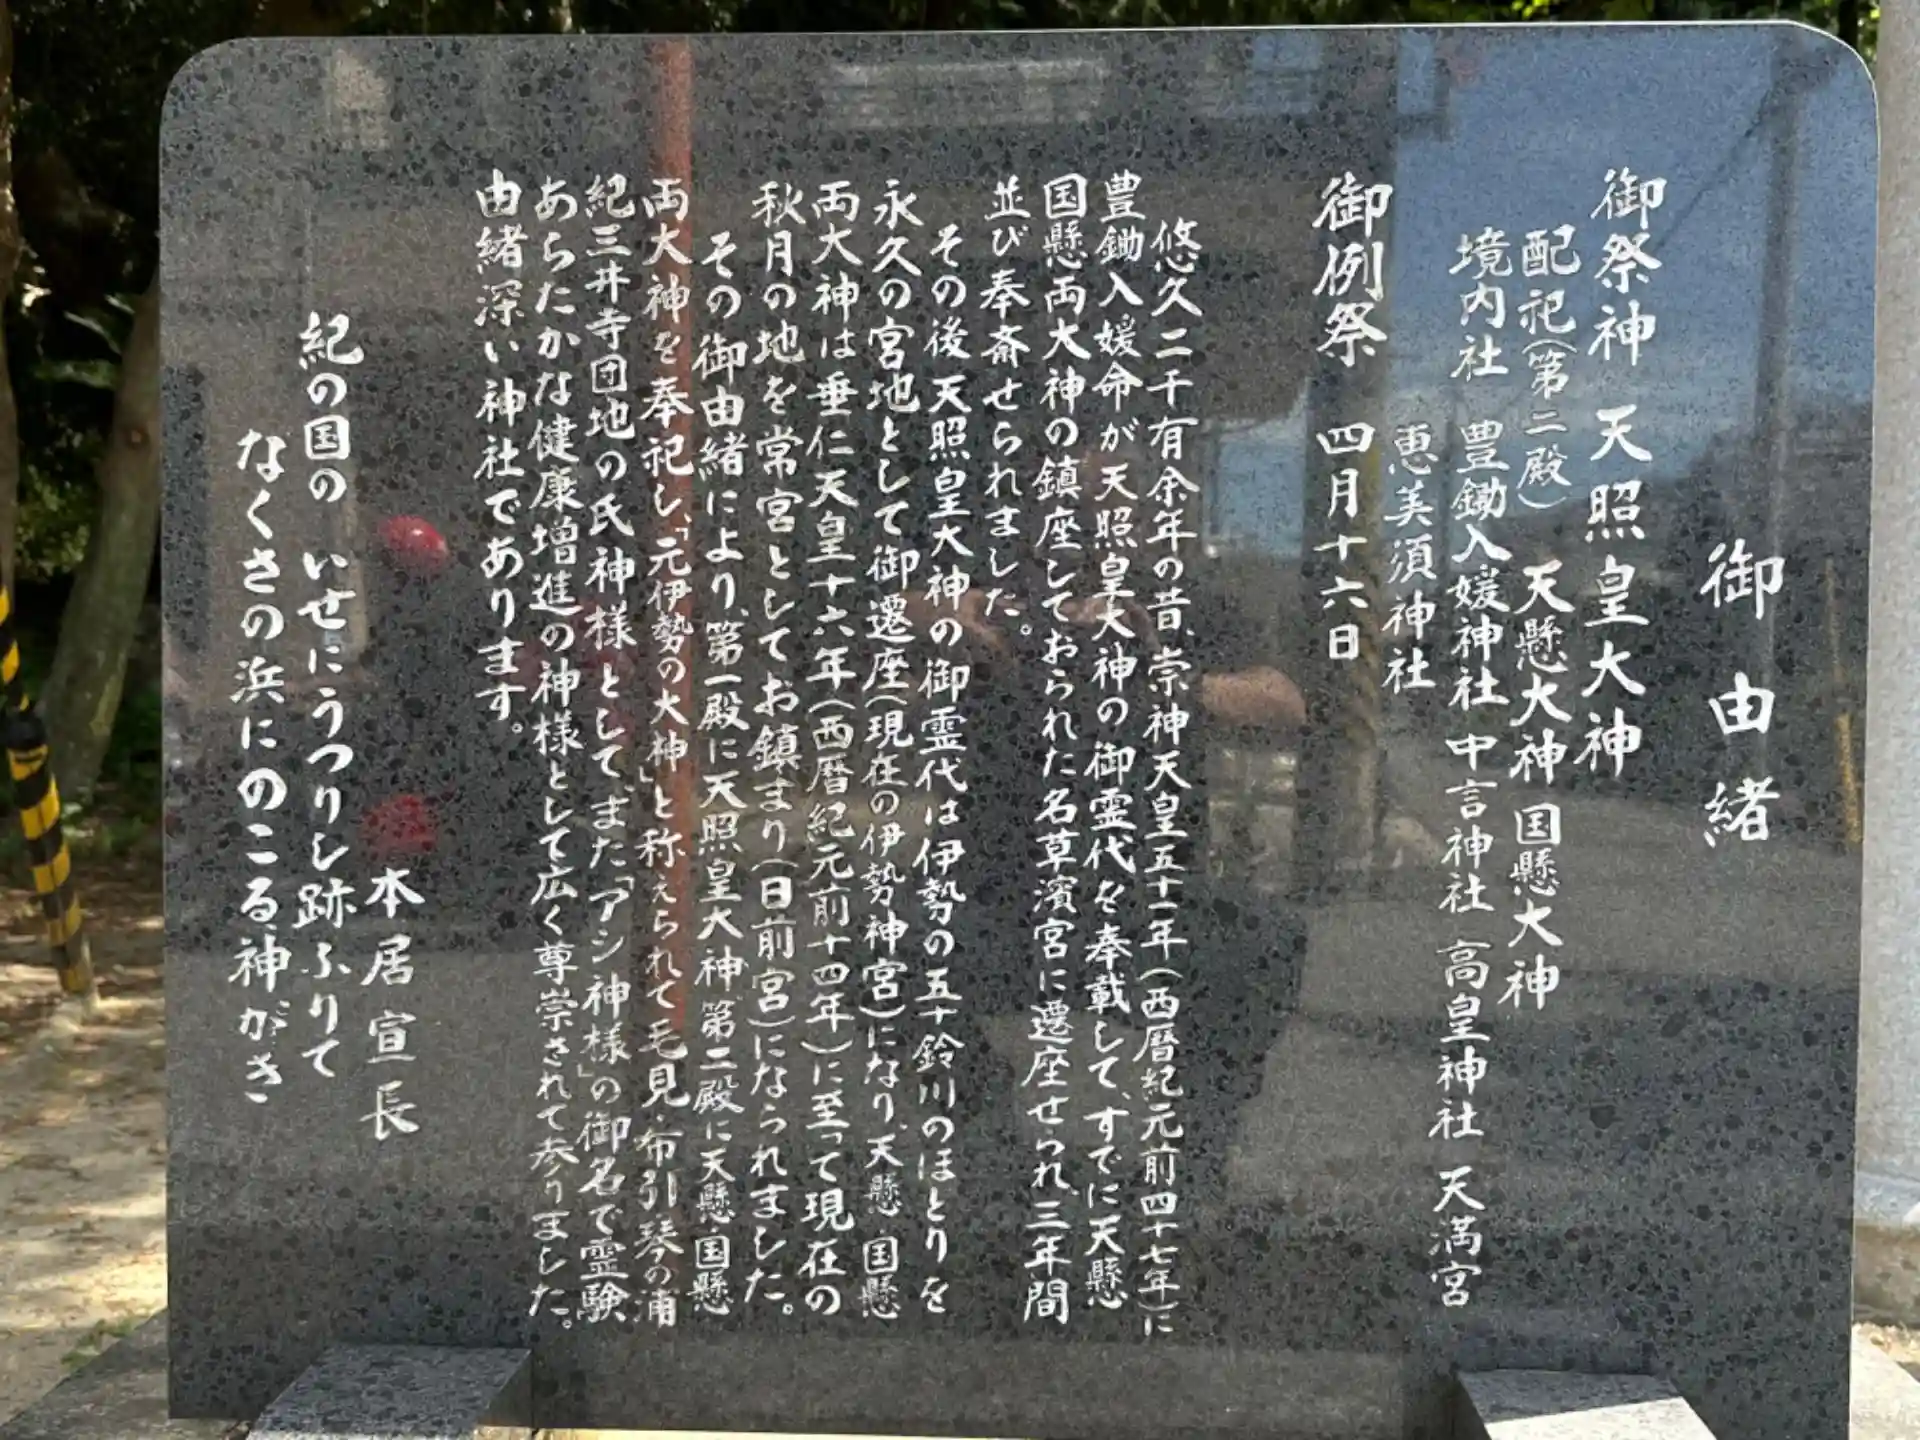 御由緒
御祭神 天照皇大神
配祀(第二殿) 天懸大神 国懸大神
境内社 豊鋤入媛神社 中言神社 高皇神社 天満宮
恵美須神社
御例祭 四月十六日
悠久二千有余年の昔、崇神天皇五十一年(西暦紀元前四十七年)に
豊鋤入媛命が天照皇大神の御霊代を奉戴して、すでに天懸
国懸両大神の鎮座しておられた名草濱宮に遷座せられ、三年間
並び奉斎せられました。
その後天照皇大神の御霊代は伊勢の五十鈴川のほとりを
永久の宮地として御遷座(現在の伊勢神宮)になり、天懸・国懸
両大神は垂仁天皇十六年(西暦紀元前十四年)に至って現在の
秋月の地を常宮としてお鎮まり(日前宮)になられました。
その御由緒により、第一殿に天照皇大神、第二殿に天懸国懸
両大神を奉祀し、「元伊勢の大神」と称えられて毛見・布引琴の浦
紀三井寺団地の氏神様として、また「アシ神様」の御名で霊験
あらたかな健康増進の神様として広く尊崇されて参りました。
由緒深い神社であります。
本居宣長
紀の国の いせにうつりし跡ふりて
なくさの浜にのこる神がき